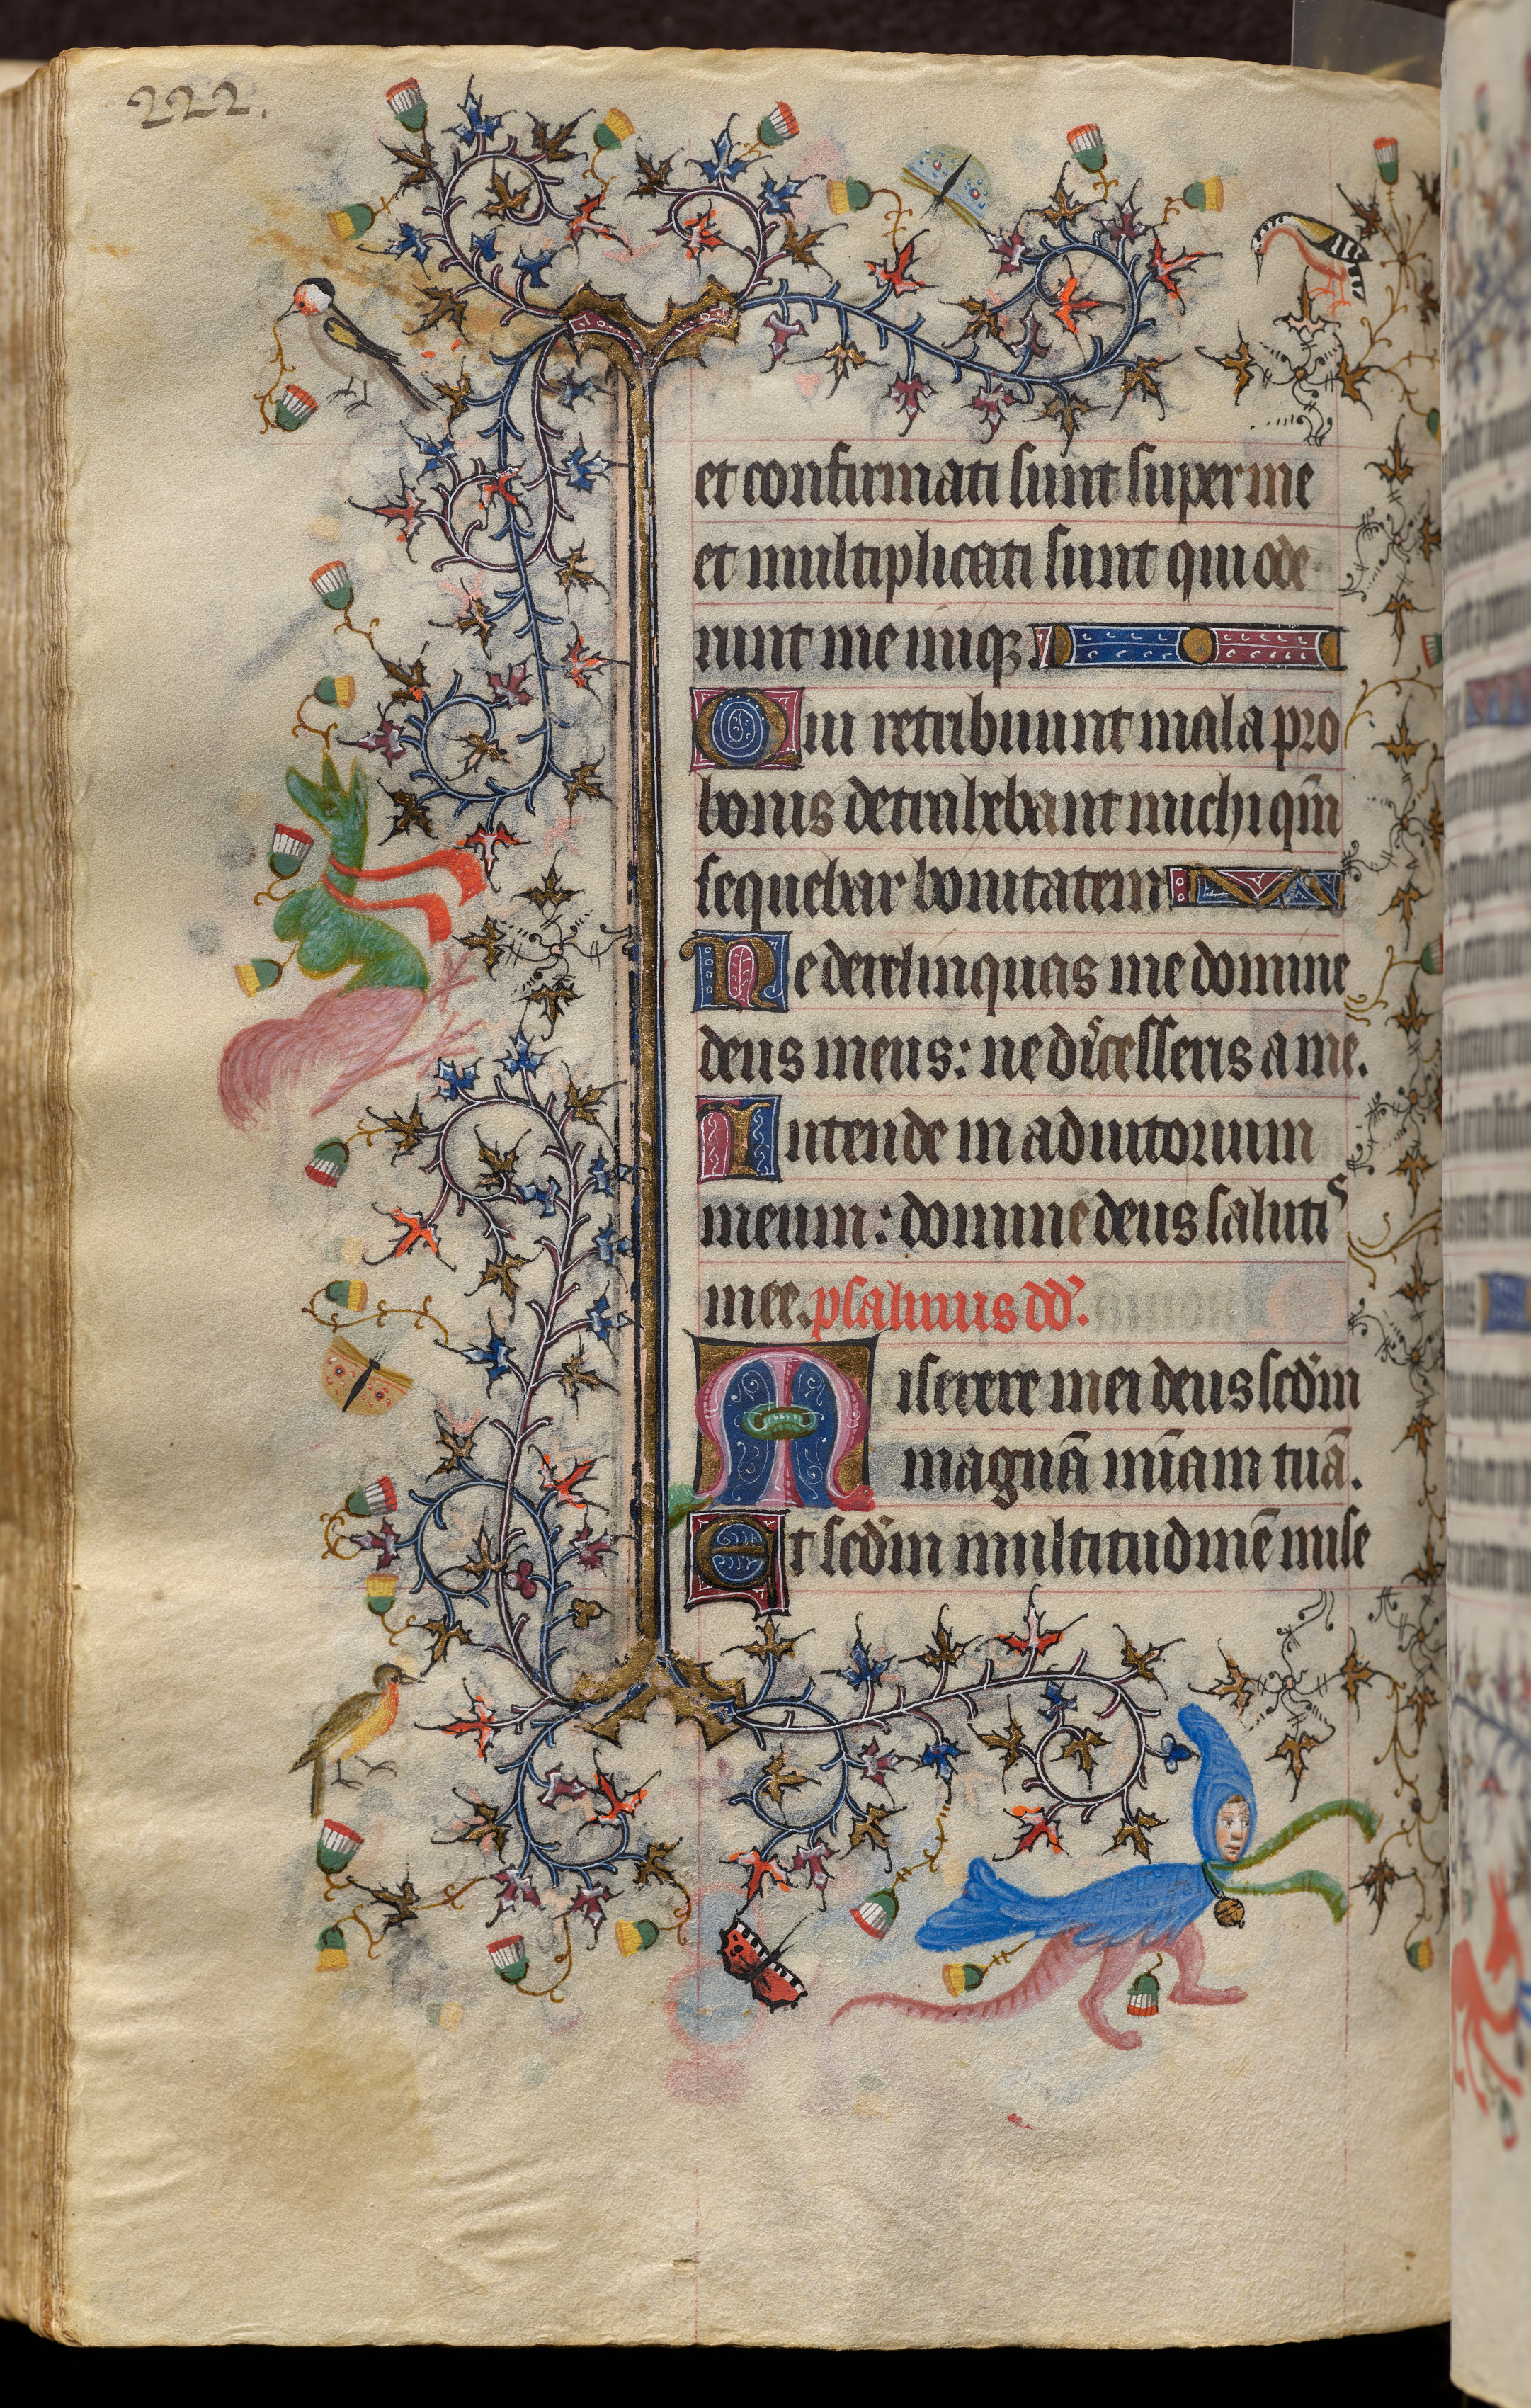 222.
et confirmati sunt super me
et multiplicati sunt qui ode
runt me iniq₃.
Qui retribuunt mala pro
bonis detrahebant michi qm̄
sequebar bonitatem
Ne derelinquas me domine
deus meus: ne discesseris a me.
Intende in adiutorium
meum: domine deus salutis
mee. psalmus dd̓.
Miserere mei deus scd̓m
magnā mīam tuā.
Et scd̓m multitudinē mise